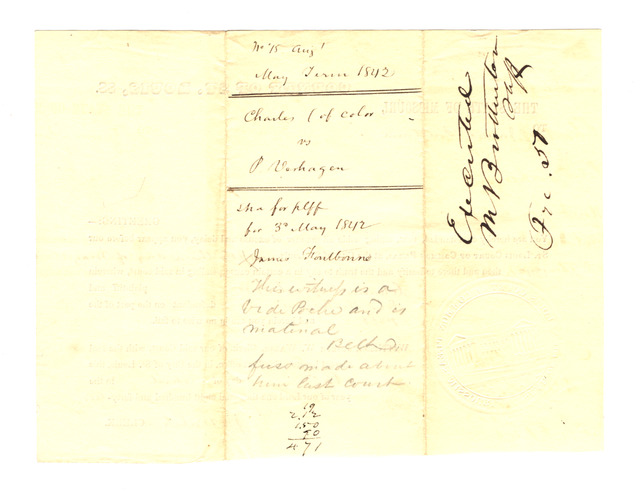 No 15 Augt
May Term 1842
Charles (of color
vs
P Verhagen
spa for plff
for 3d May 1842
James Fontbonne
This witness is a
Vide Poche and is
material
fuss made about
him last court
19
2.12
150
50
4 71
Executed
M Brotherton
Shff
Fee. 50